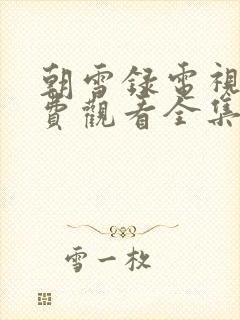 朝雪録電視
費觀看全集
雪一枚